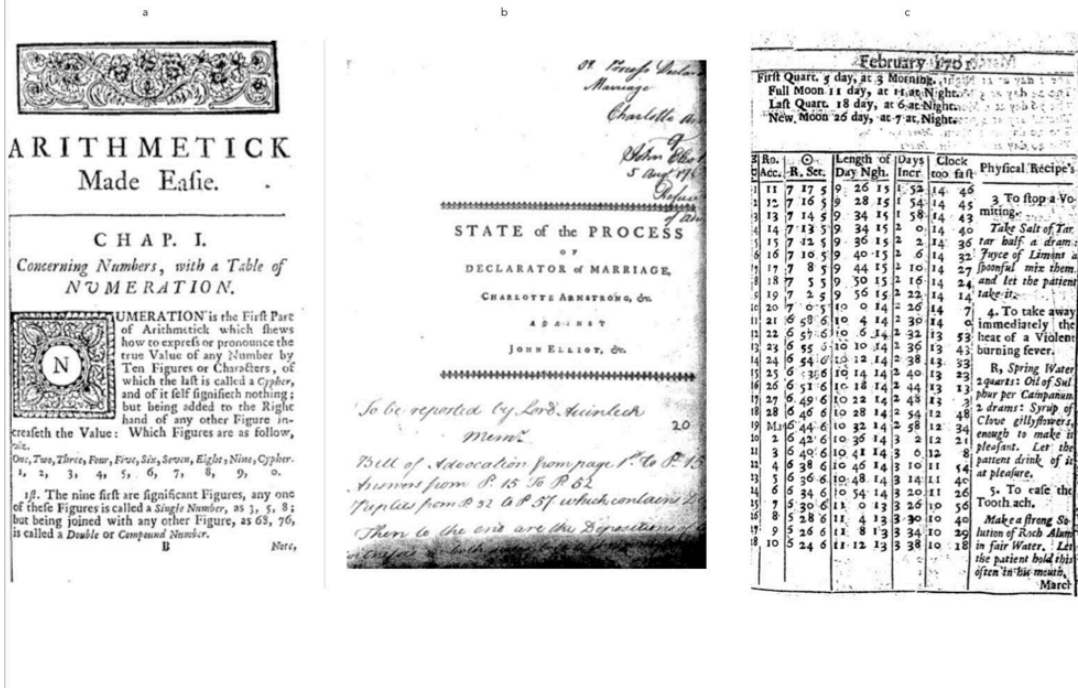 a
b
c
ARITHMETICK
Made Easie.
CHAP. I.
Concerning Numbers, with a Table of
NVMERATION.
NUMERATION is the First Part
of Arithmetick which shews
how to express or pronounce the
true Value of any Number by
Ten Figures or Characters, of
which the last is called a Cypher,
and of it self signifieth nothing;
but being added to the Right
hand of any other Figure in-
creaseth the Value: Which Figures are as follow,
viz.
One, Two, Three, Four, Five, Six, Seven, Eight, Nine, Cypher.
1, 2, 3, 4, 5, 6, 7, 8, 9, 0.
1st. The nine first are significant Figures, any one
of these Figures is called a Single Number, as 3, 5, 8;
but being joined with any other Figure, as 68, 76,
is called a Double or Compound Number.
B Note,
Marriage
Charlotte
John
5 Augt
STATE of the PROCESS
OF
DECLARATOR of MARRIAGE,
CHARLOTTE ARMSTRONG, &c.
AGAINST
JOHN ELLIOT, &c.
To be reported by Lord Auinleck
20
Bill of Advocation from page 1st to P. 15
Answers from P. 15 to P. 32
Replies from P. 32 to P. 57 which contains
Then to the end are the Depositions of
February 1701.
First Quart. 3 day, at 3 Morning.
Full Moon 11 day, at 11 at Night.
Last Quart. 18 day, at 6 at Night.
New Moon 26 day, at 7 at Night.
Ro. Acc. R. Set. Length of Day Ngh. Days Incr Clock too fast Physical Recipe's
11 7 17 5 9 26 15 1 52 14 46
12 7 16 5 9 28 15 1 54 14 45
13 7 14 5 9 34 15 1 58 14 43
14 7 13 5 9 34 15 2 0 14 40
15 7 12 5 9 36 15 2 2 14 36
16 7 10 5 9 40 15 2 6 14 32
17 7 8 5 9 44 15 2 10 14 27
18 7 5 5 9 50 15 2 16 14 24
19 7 2 5 9 56 15 2 22 14 14
20 7 0 5 10 0 14 2 26 14 7
21 6 58 6 10 4 14 2 30 14 0
22 6 57 6 10 6 14 2 32 13 53
23 6 55 10 10 14 2 36 13 43
24 6 54 6 10 12 14 2 38 13 33
25 6 10 14 14 2 40 13 23
26 6 51 6 10 18 14 2 44 13 13
27 6 49 6 10 22 14 2 48 13 3
28 6 46 6 10 28 14 2 54 12 48
6 44 6 10 32 14 2 58 12 34
2 6 42 6 10 36 14 3 2 12 21
3 6 40 6 10 41 14 3 6 12 8
4 6 38 6 10 46 14 3 10 11 54
5 6 36 6 10 48 14 3 14 11 40
6 6 34 6 10 54 14 3 20 11 26
7 6 30 6 11 0 13 3 26 10 56
8 5 28 6 11 4 13 3 30 10 40
9 5 26 6 11 8 13 3 34 10 29
10 5 24 6 11 12 13 3 38 10 18
3 To stop a Vo-
miting.
Take Salt of Tar
tar half a dram:
Juyce of Limons a
spoonful mix them.
and let the patient
take it.
4. To take away
immediately the
heat of a Violent
burning fever.
R, Spring Water
2 quarts: Oil of Sul
phur per Campanum.
2 drams: Syrup of
Clove gillyflowers,
enough to make it
pleasant. Let the
patient drink of it
at pleasure.
5. To ease the
Tooth ach.
Make a strong So-
lution of Roch Alum
in fair Water. Let
the patient hold this
often in his mouth.
March